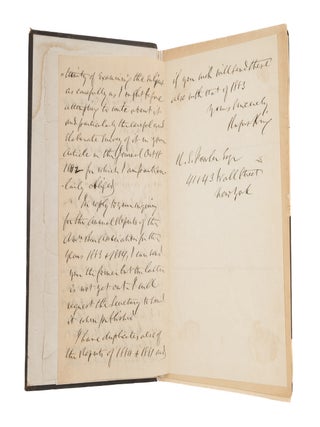 of examining the subject
as carefully as I might before
attempting to write about it
and particularly the careful and
elaborate survey of it in your
Article in the Journal Oct
1882 for which I am particu-
larly obliged
In reply to your enquiry
for the Annual Reports of the
Association for the
Years 1883 & 1884, I can send
you the former but the latter
is not yet out. I will
request the Secretary to send
it when published
I have duplicates also of
the Reports of 1880 & 1881 and
if you wish will send them
also with that of 1883
Yours sincerely
Rufus King
Esqr
41 & 43 Wall Street
New York